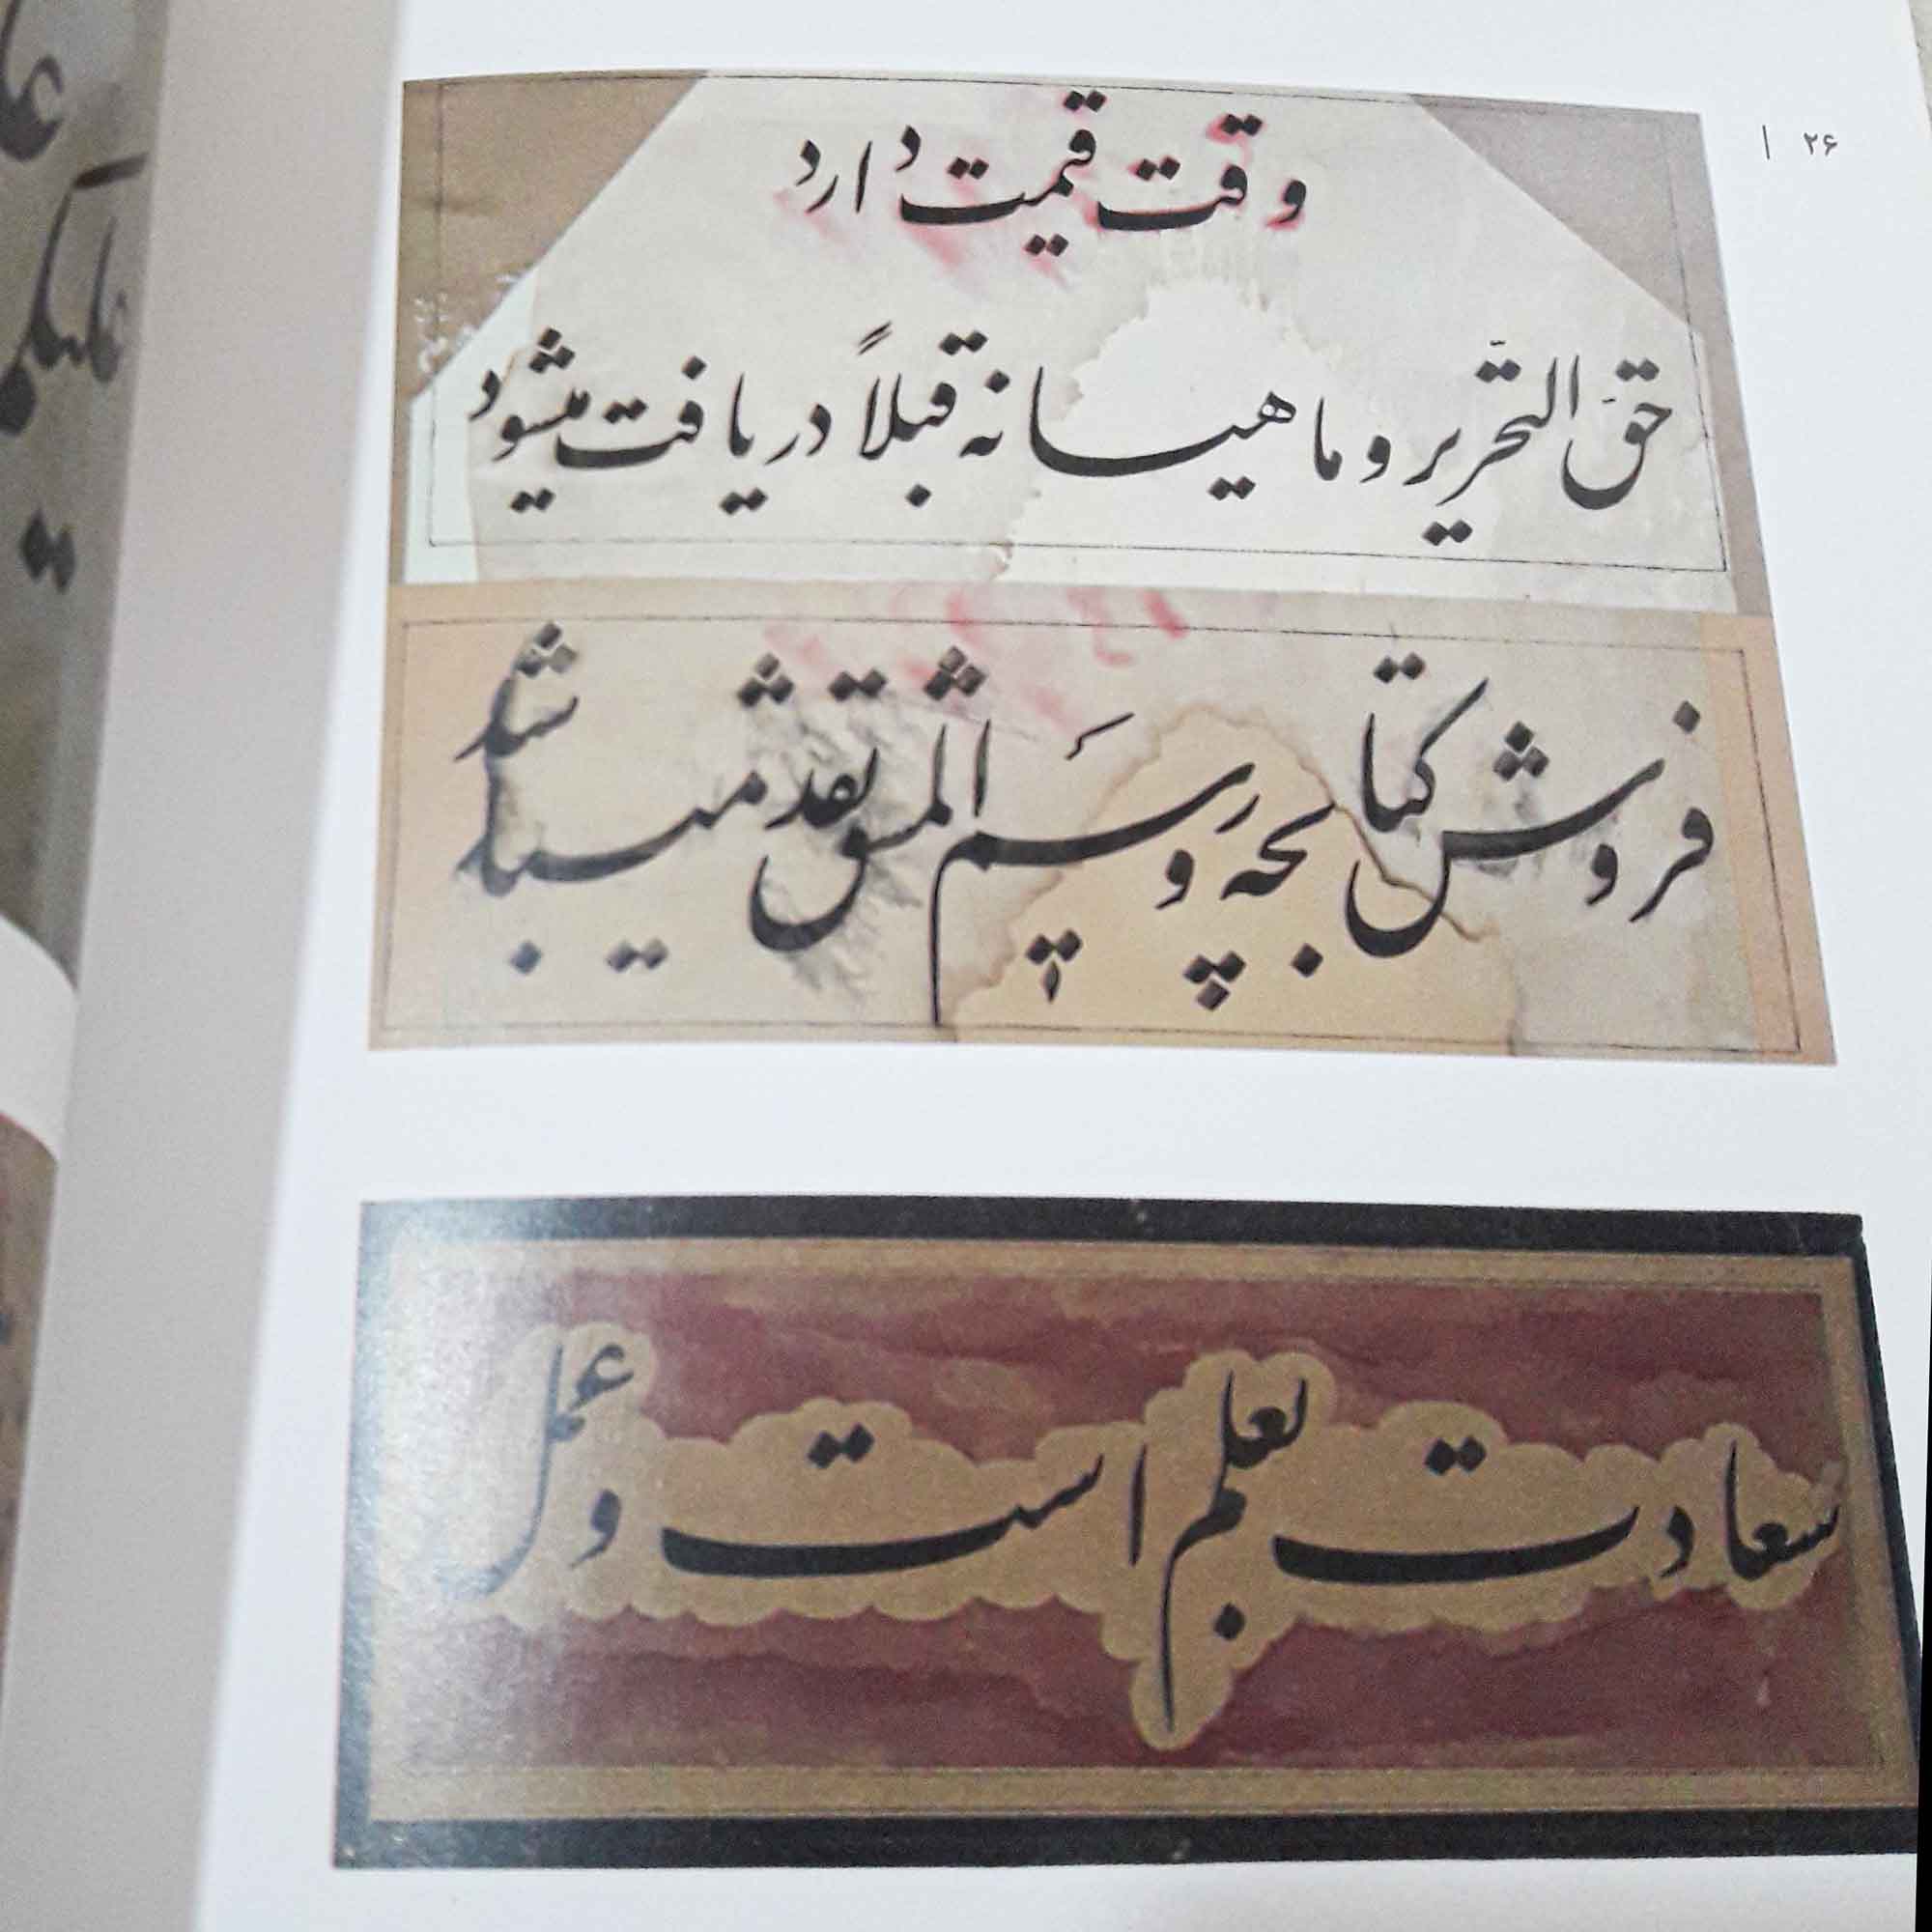 ۲۶
وقت قیمت دارد
حقّ التحریر و ماهیانه قبلاً دریافت میشود
فروش کتابچه و رسم المشق نقد میباشد
سعادت بعلم است و عمل